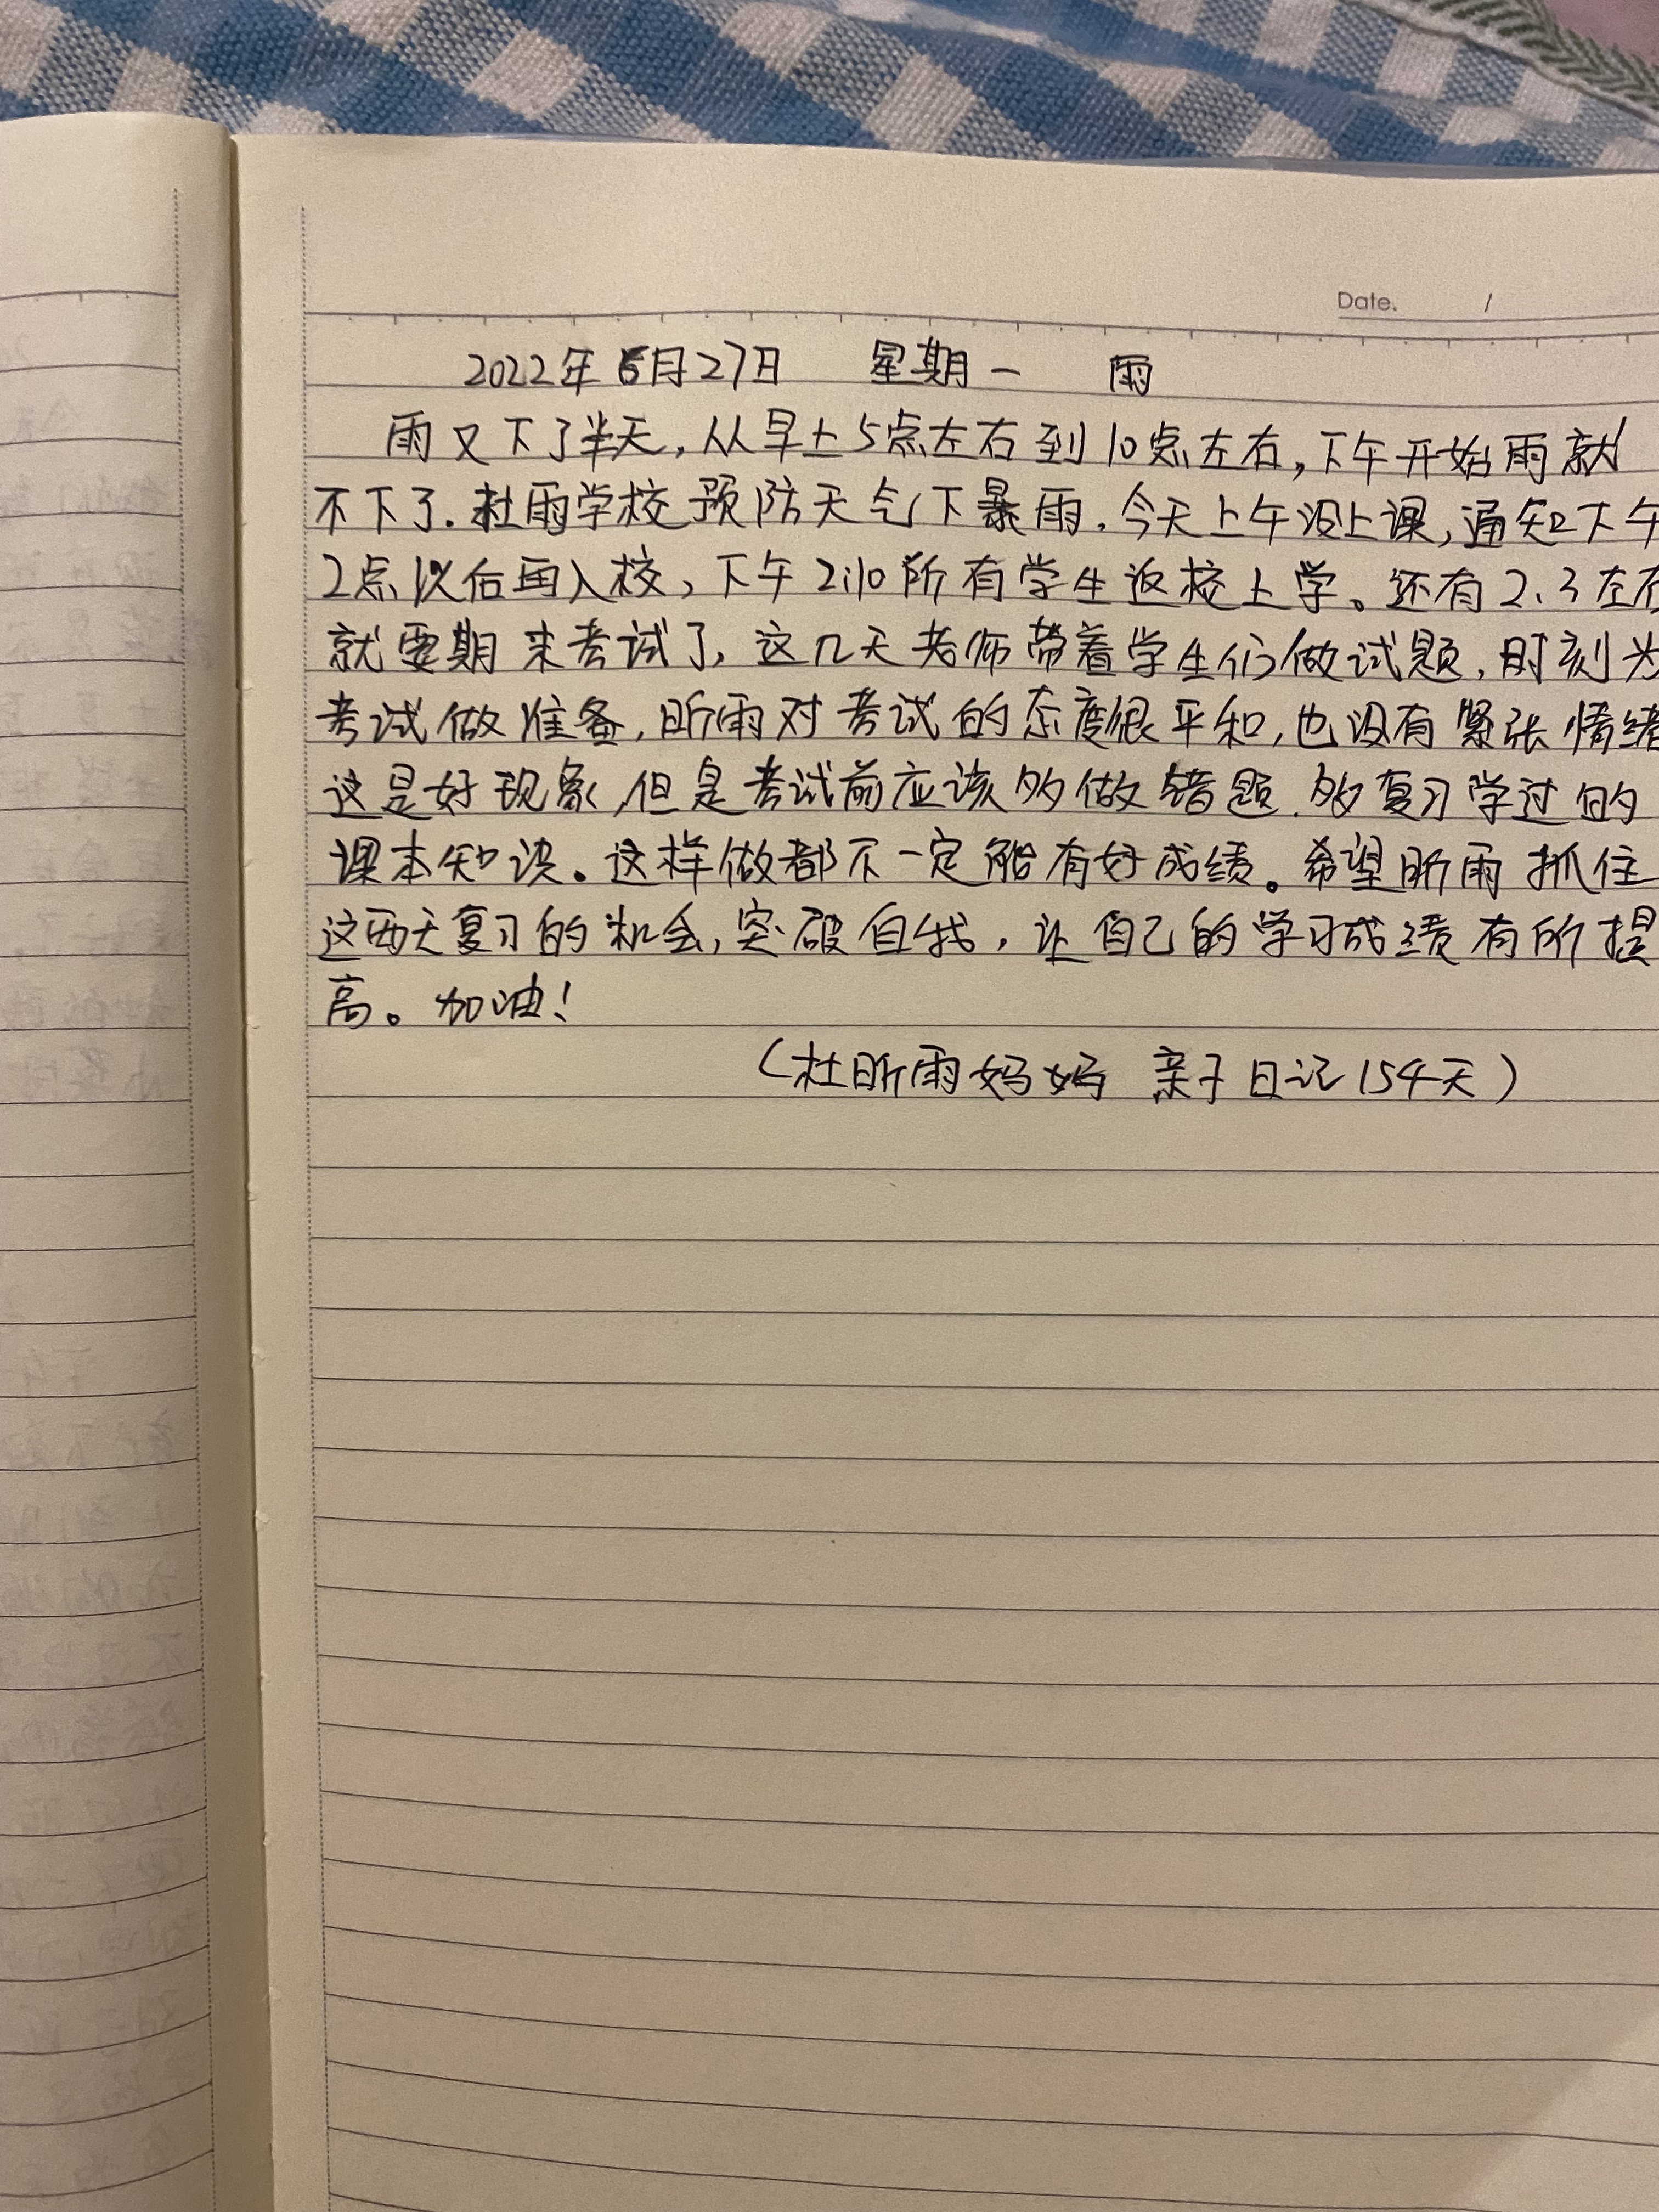 Date. /
2022年6月27日 星期一 雨
雨又下了半天,从早上5点左右到10点左右,下午开始雨就
不下了.杜雨学校预防天气下暴雨.今天上午没上课,通知下午
2点以后再入校,下午2:10所有学生返校上学。还有2、3左右
就要期末考试了,这几天老师带着学生们做试题,时刻为
考试做准备,昕雨对考试的态度很平和,也没有紧张情绪
这是好现象,但是考试前应该多做错题.多复习学过的
课本知识。这样做都不一定能有好成绩。希望昕雨抓住
这两天复习的机会,突破自我,让自己的学习成绩有所提
高。加油!
(杜昕雨妈妈 亲子日记154天)